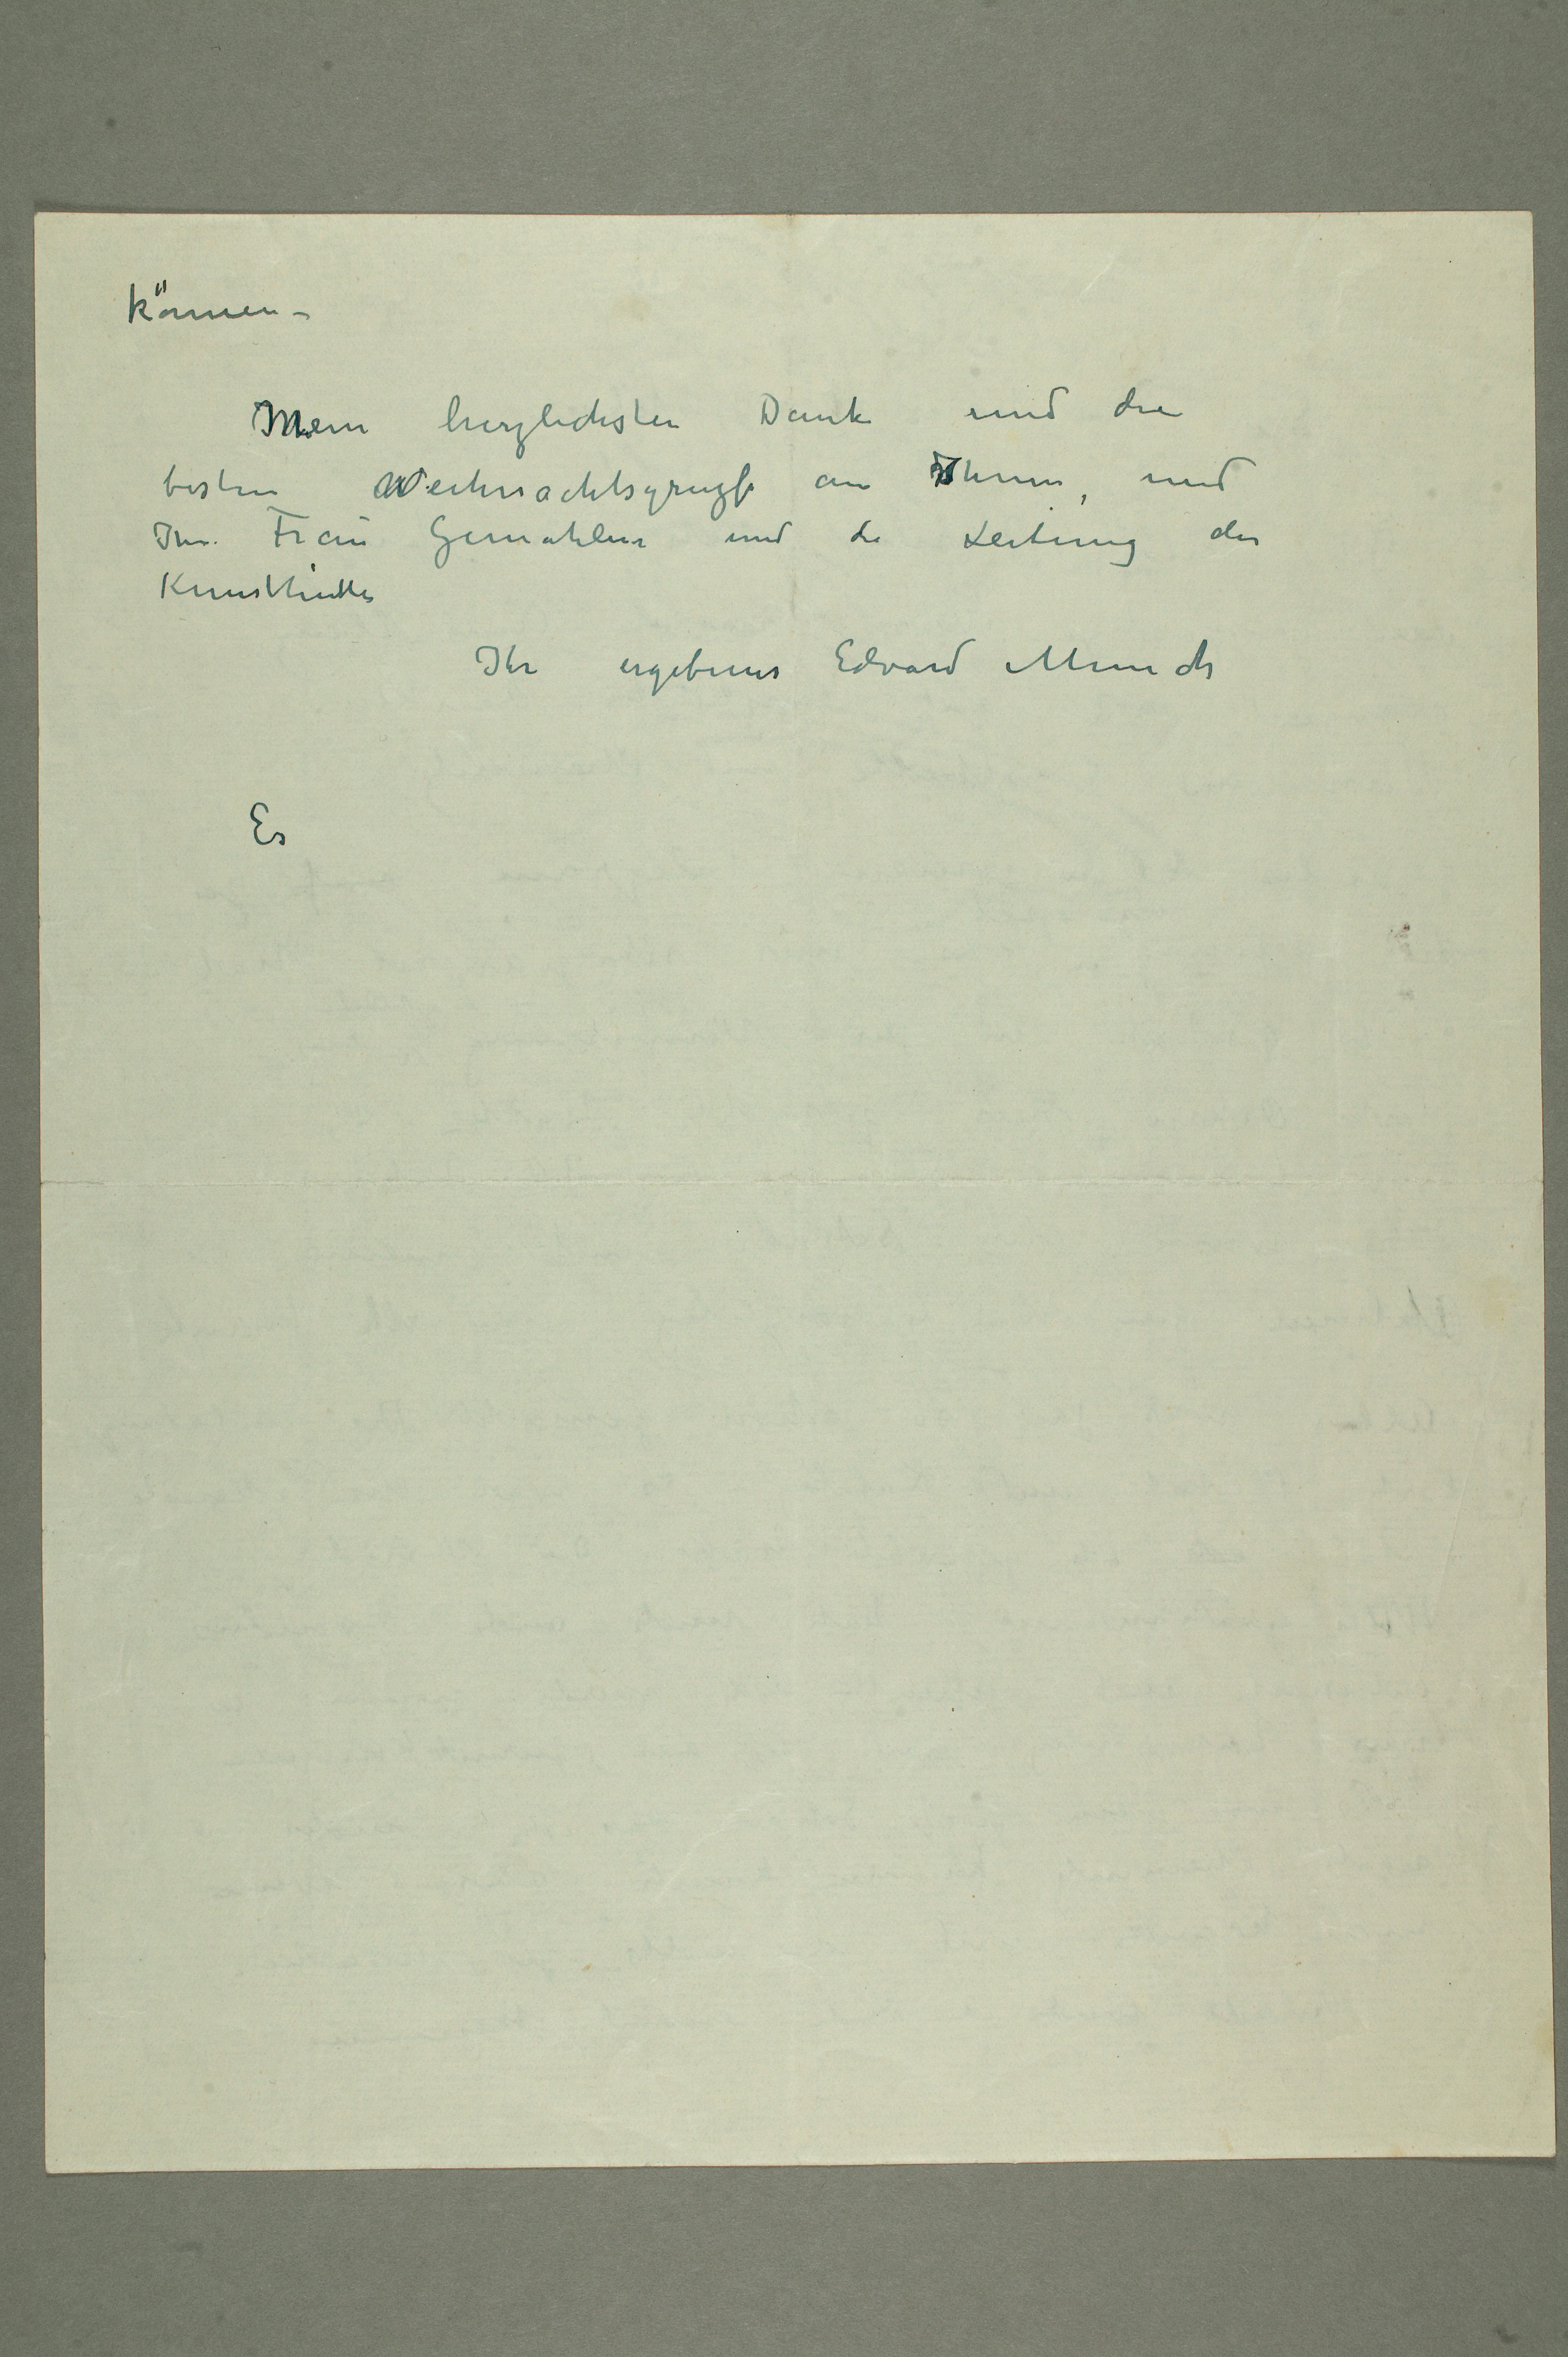 können –
Mein herzlichsten Dank und die
besten Weihnachtsgruße an Ihnen, und
Ihre Frau Gemahlin und die Leitung der
Kunsthütte
Ihr ergebener Edvard Munch
Es